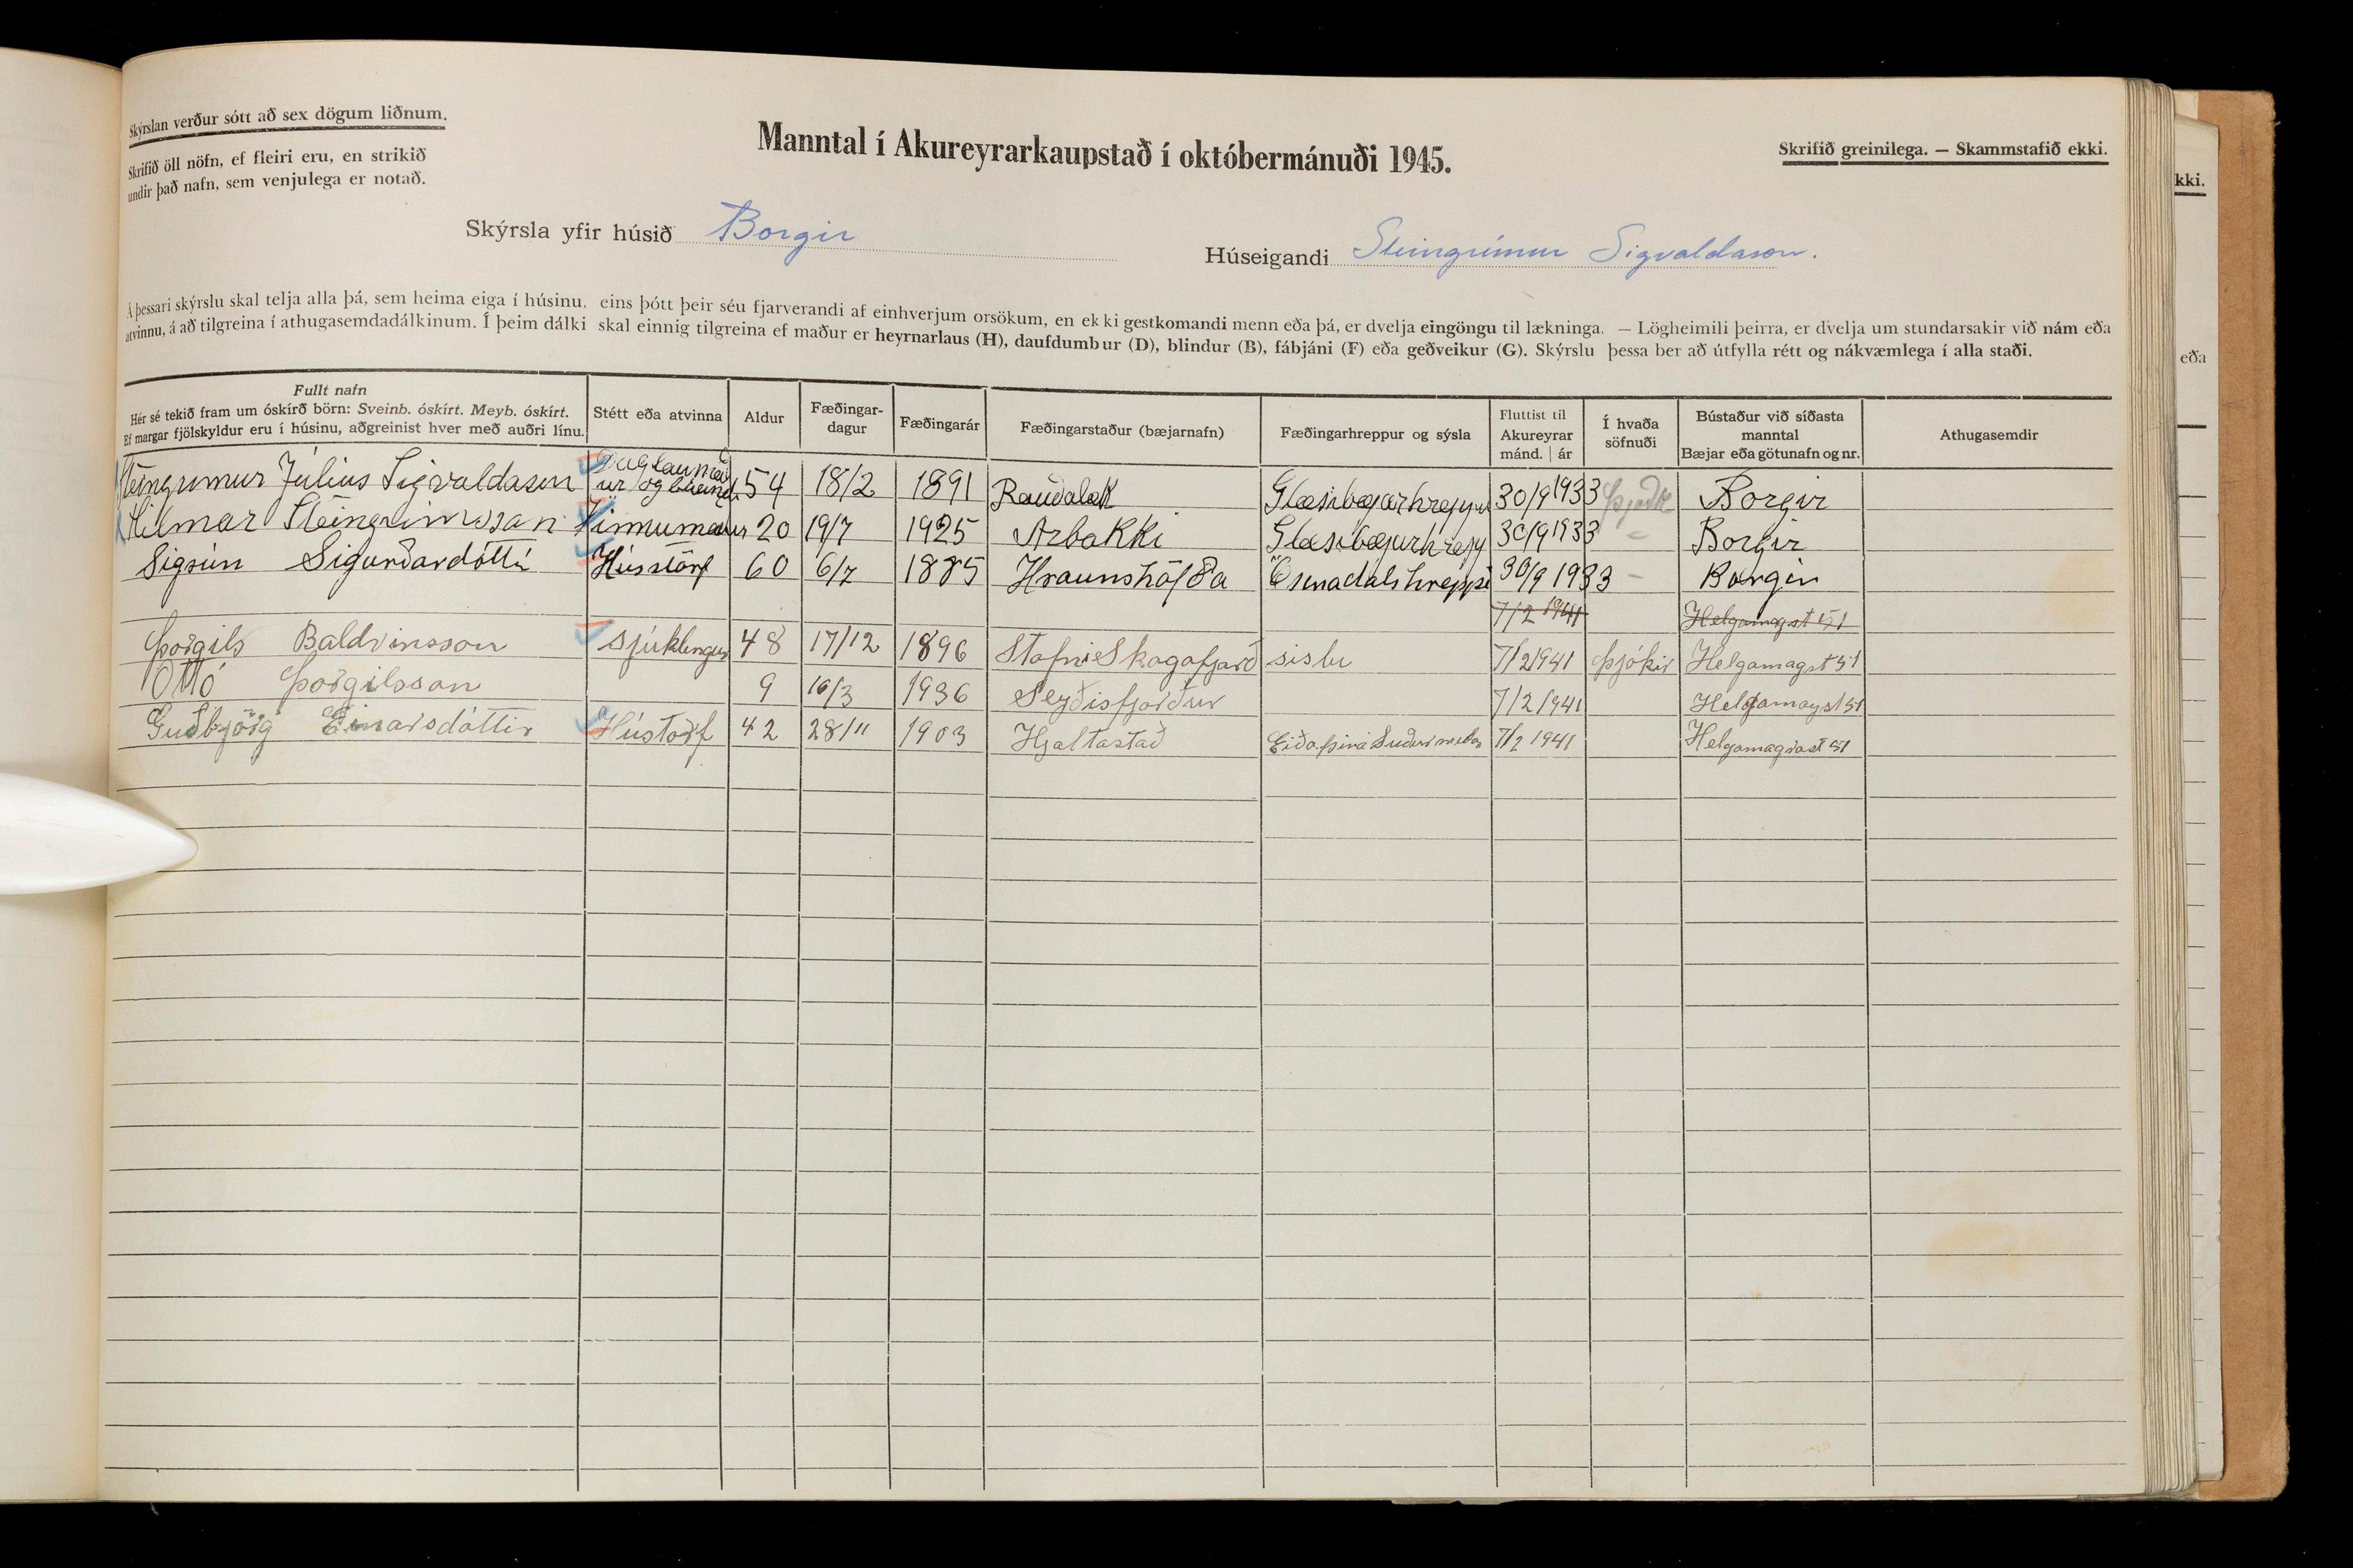 Skýrslan verður sótt að sex dögum liðnum.
Skrifið öll nöfn, ef fleiri eru, en strikið
undir það nafn, sem venjulega er notað.
Manntal í Akureyrarkaupstað í októbermánuði 1945.
Skrifið greinilega. — Skammstafið ekki.
kki.
Skýrsla yfir húsið Borgir
Húseigandi Steingrímur Sigvaldason.
Á þessari skýrslu skal telja alla þá, sem heima eiga í húsinu, eins þótt þeir séu fjarverandi af einhverjum orsökum, en ekki gestkomandi menn eða þá, er dvelja eingöngu til lækninga. — Lögheimili þeirra, er dvelja um stundarsakir við nám eða
atvinnu, á að tilgreina í athugasemdadálkinum. Í þeim dálki skal einnig tilgreina ef maður er heyrnarlaus (H), daufdumbur (D), blindur (B), fábjáni (F) eða geðveikur (G). Skýrslu þessa ber að útfylla rétt og nákvæmlega í alla staði.
eða
Fullt nafn
Hér sé tekið fram um óskírð börn: Sveinb. óskírt. Meyb. óskírt.
Ef margar fjölskyldur eru í húsinu, aðgreinist hver með auðri línu.
Stétt eða atvinna
Aldur
Fæðingar-
dagur
Fæðingarár
Fæðingarstaður (bæjarnafn)
Fæðingarhreppur og sýsla
Fluttist til
Akureyrar
mánd. | ár
Í hvaða
söfnuði
Bústaður við síðasta
manntal
Bæjar eða götunafn og nr.
Athugasemdir
Steingrímur Júlíus Sigvaldason 54 18/2 1891 Rauðalæk Glæsibæjarhreppur 30/9 1933 Borgir
Hilmar Steingrímsson Vinnumaður 20 19/7 1925 Arbakki Glæsibæjarhrepp 30/9 1933 Borgir
Sigrún Sigurðardóttir Hússtörf 60 6/7 1885 Hraunshöfða Öxnadalshreppi 30/9 1933 – Borgir
7/2 1941 Helgamagst 51
Þorgils Baldvinsson Sjúklingur 48 17/12 1896 Stafni Skagafjarð sislu 7/2 1941 Þjókir Helgamagst 51
Ottó Þorgilsson 9 16/3 1936 Seyðisfjorður 7/2 1941 Helgamagst 51
Guðbjörg Einarsdóttir Hústörf 42 28/11 1903 Hjaltastað 7/2 1941 Helgamagrast 51